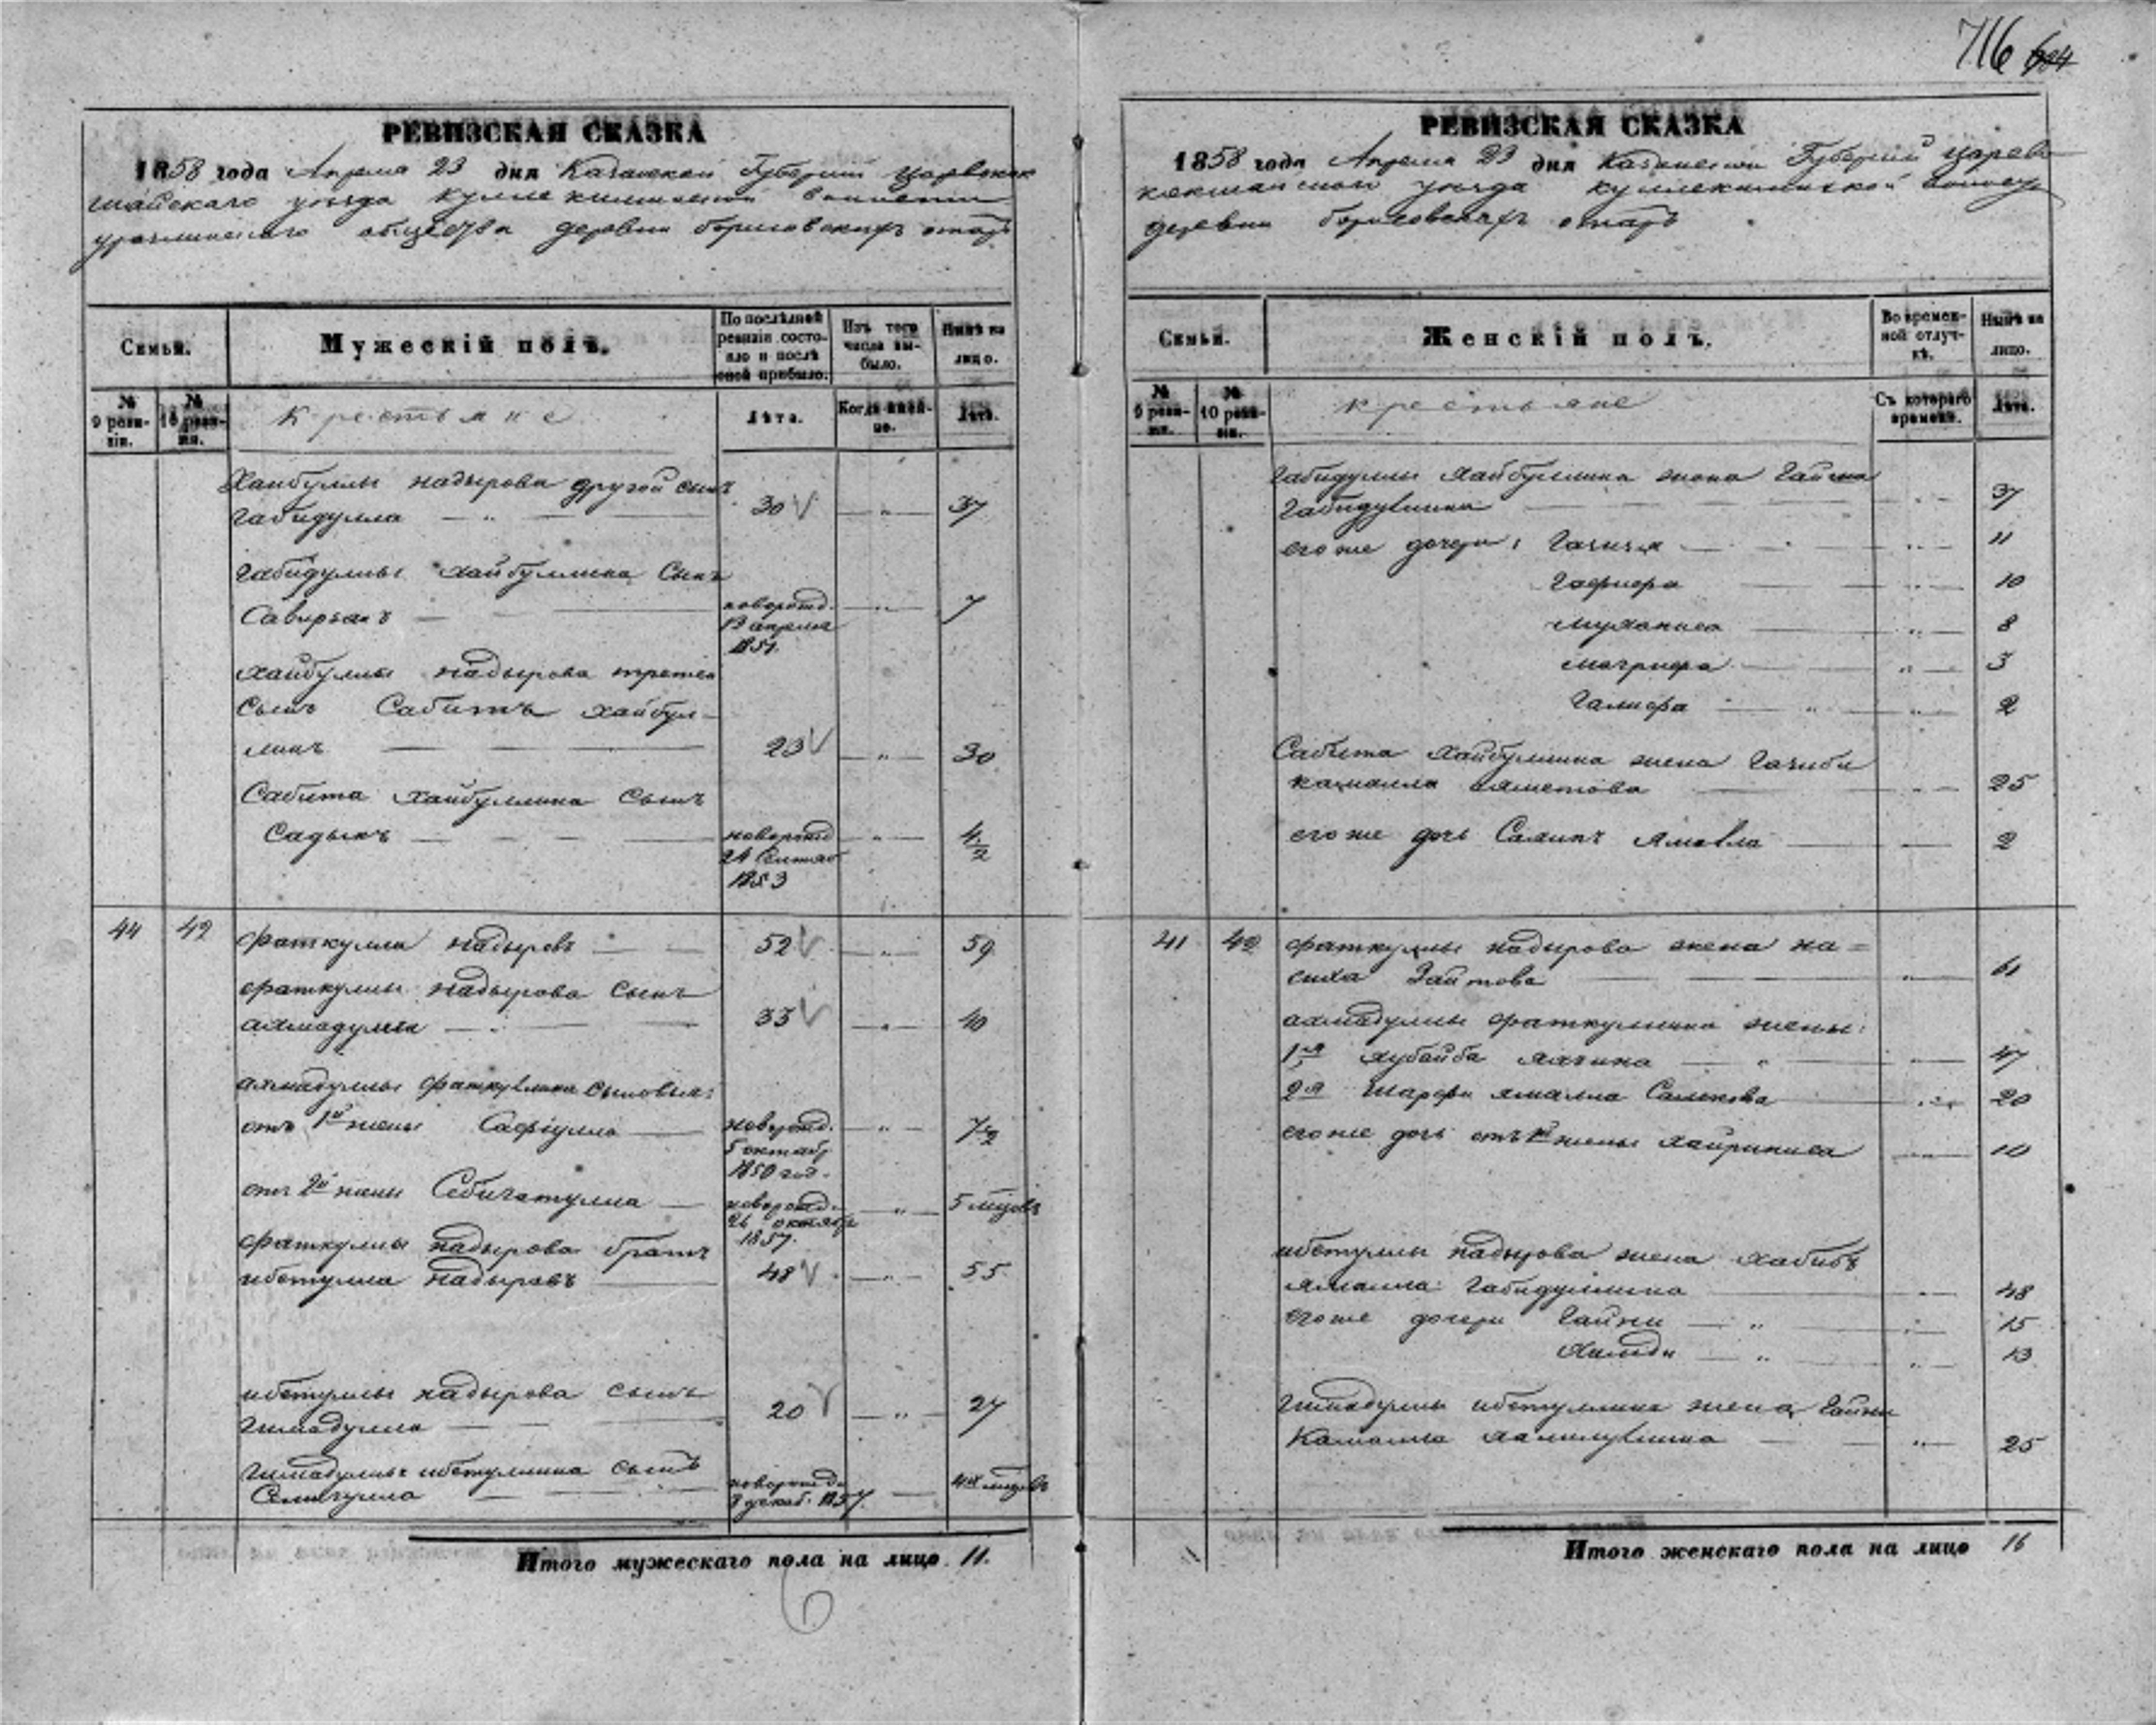 716 604
РЕВИЗСКАЯ СКАЗКА
1858 года Апреля 23 дня Казанской Губернии Царевокок
шайскаго уезда Кулле киминской волости
общества деревни борисовскихъ отаръ
Семьи.
Мужескій полъ.
По послѣдней ревизіи состояло и послѣ оной прибыло.
Изъ того числа выбыло.
Нынѣ на лицо.
№ 9 ревизіи.
№ 10 ревизіи.
крестьяне
Лѣта.
Когда именно.
Лѣта.
Хайбуллы надырова другой сынъ
габидулла — „ — 30 „ 37
габидуллы хайбуллина Сынъ
Савирзанъ — новорожд. 13 апреля 1851. „ 7
хайбуллы надырова третей
сынъ Сабитъ хайбул-
линъ — 23 „ 30
Сабита хайбуллина Сынъ
Садыкъ — новорожд 24 Сентяб 1853 „ 4 1/2
44 42 фаткулла надыровъ — 52 „ 59
фаткуллы надырова Сынъ
ахмадулла — 33 „ 40
ахмадуллы фаткуллина сыновья:
отъ 1й жены Сафіулла — новорожд. 5 октябр 1850 год. „ 7 1/2
отъ 2й жены Себигатулла — новорожд. 26 октября 1857. „ 5 мцовъ
фаткуллы надырова братъ
ибетулла надыровъ — 48 „ 55
ибетуллы надырова сынъ
гимадулла — 20 „ 27
гимадуллы ибетуллина сынъ
новорожд 8 декаб. 1857 — 4х мцовъ
Итого мужескаго пола на лицо 11.
6
РЕВИЗСКАЯ СКАЗКА
1858 года Апреля 23 дня Казанской Губерніи Царево
кокшайского уезда кулекиминской волости
деревни борисовскихъ отаръ
Семьи.
Женскій полъ.
Во временной отлучкѣ.
Нынѣ на лицо.
№ 9 ревизіи.
№ 10 ревизіи.
крестьяне
Съ котораго времени.
Лѣта.
Габидуллы хайбуллина жена
габидуллина — „ 37
его же дочери: — „ 11
— „ 10
муханиса — „ 8
магрифа — „ 3
Галифа — „ 2
Сабита хайбуллина жена Газиби
камалла ахметова — „ 25
его же дочь — 2
41 42 фаткуллы надырова жена на=
сиха Заитова — „ 61
ахмадуллы фаткуллина жены:
1я хубайба — „ 47
2я Шарфи ямалла — „ 20
его же дочь отъ 1й жены хайриниса — 10
ибетуллы надырова жена хабибъ
ямалла габидуллина — „ 48
его же дочери Гайни — „ 15
— „ 13
гимадуллы ибетуллина жена Гайни
Камалла — „ 25
Итого женскаго пола на лицо 16